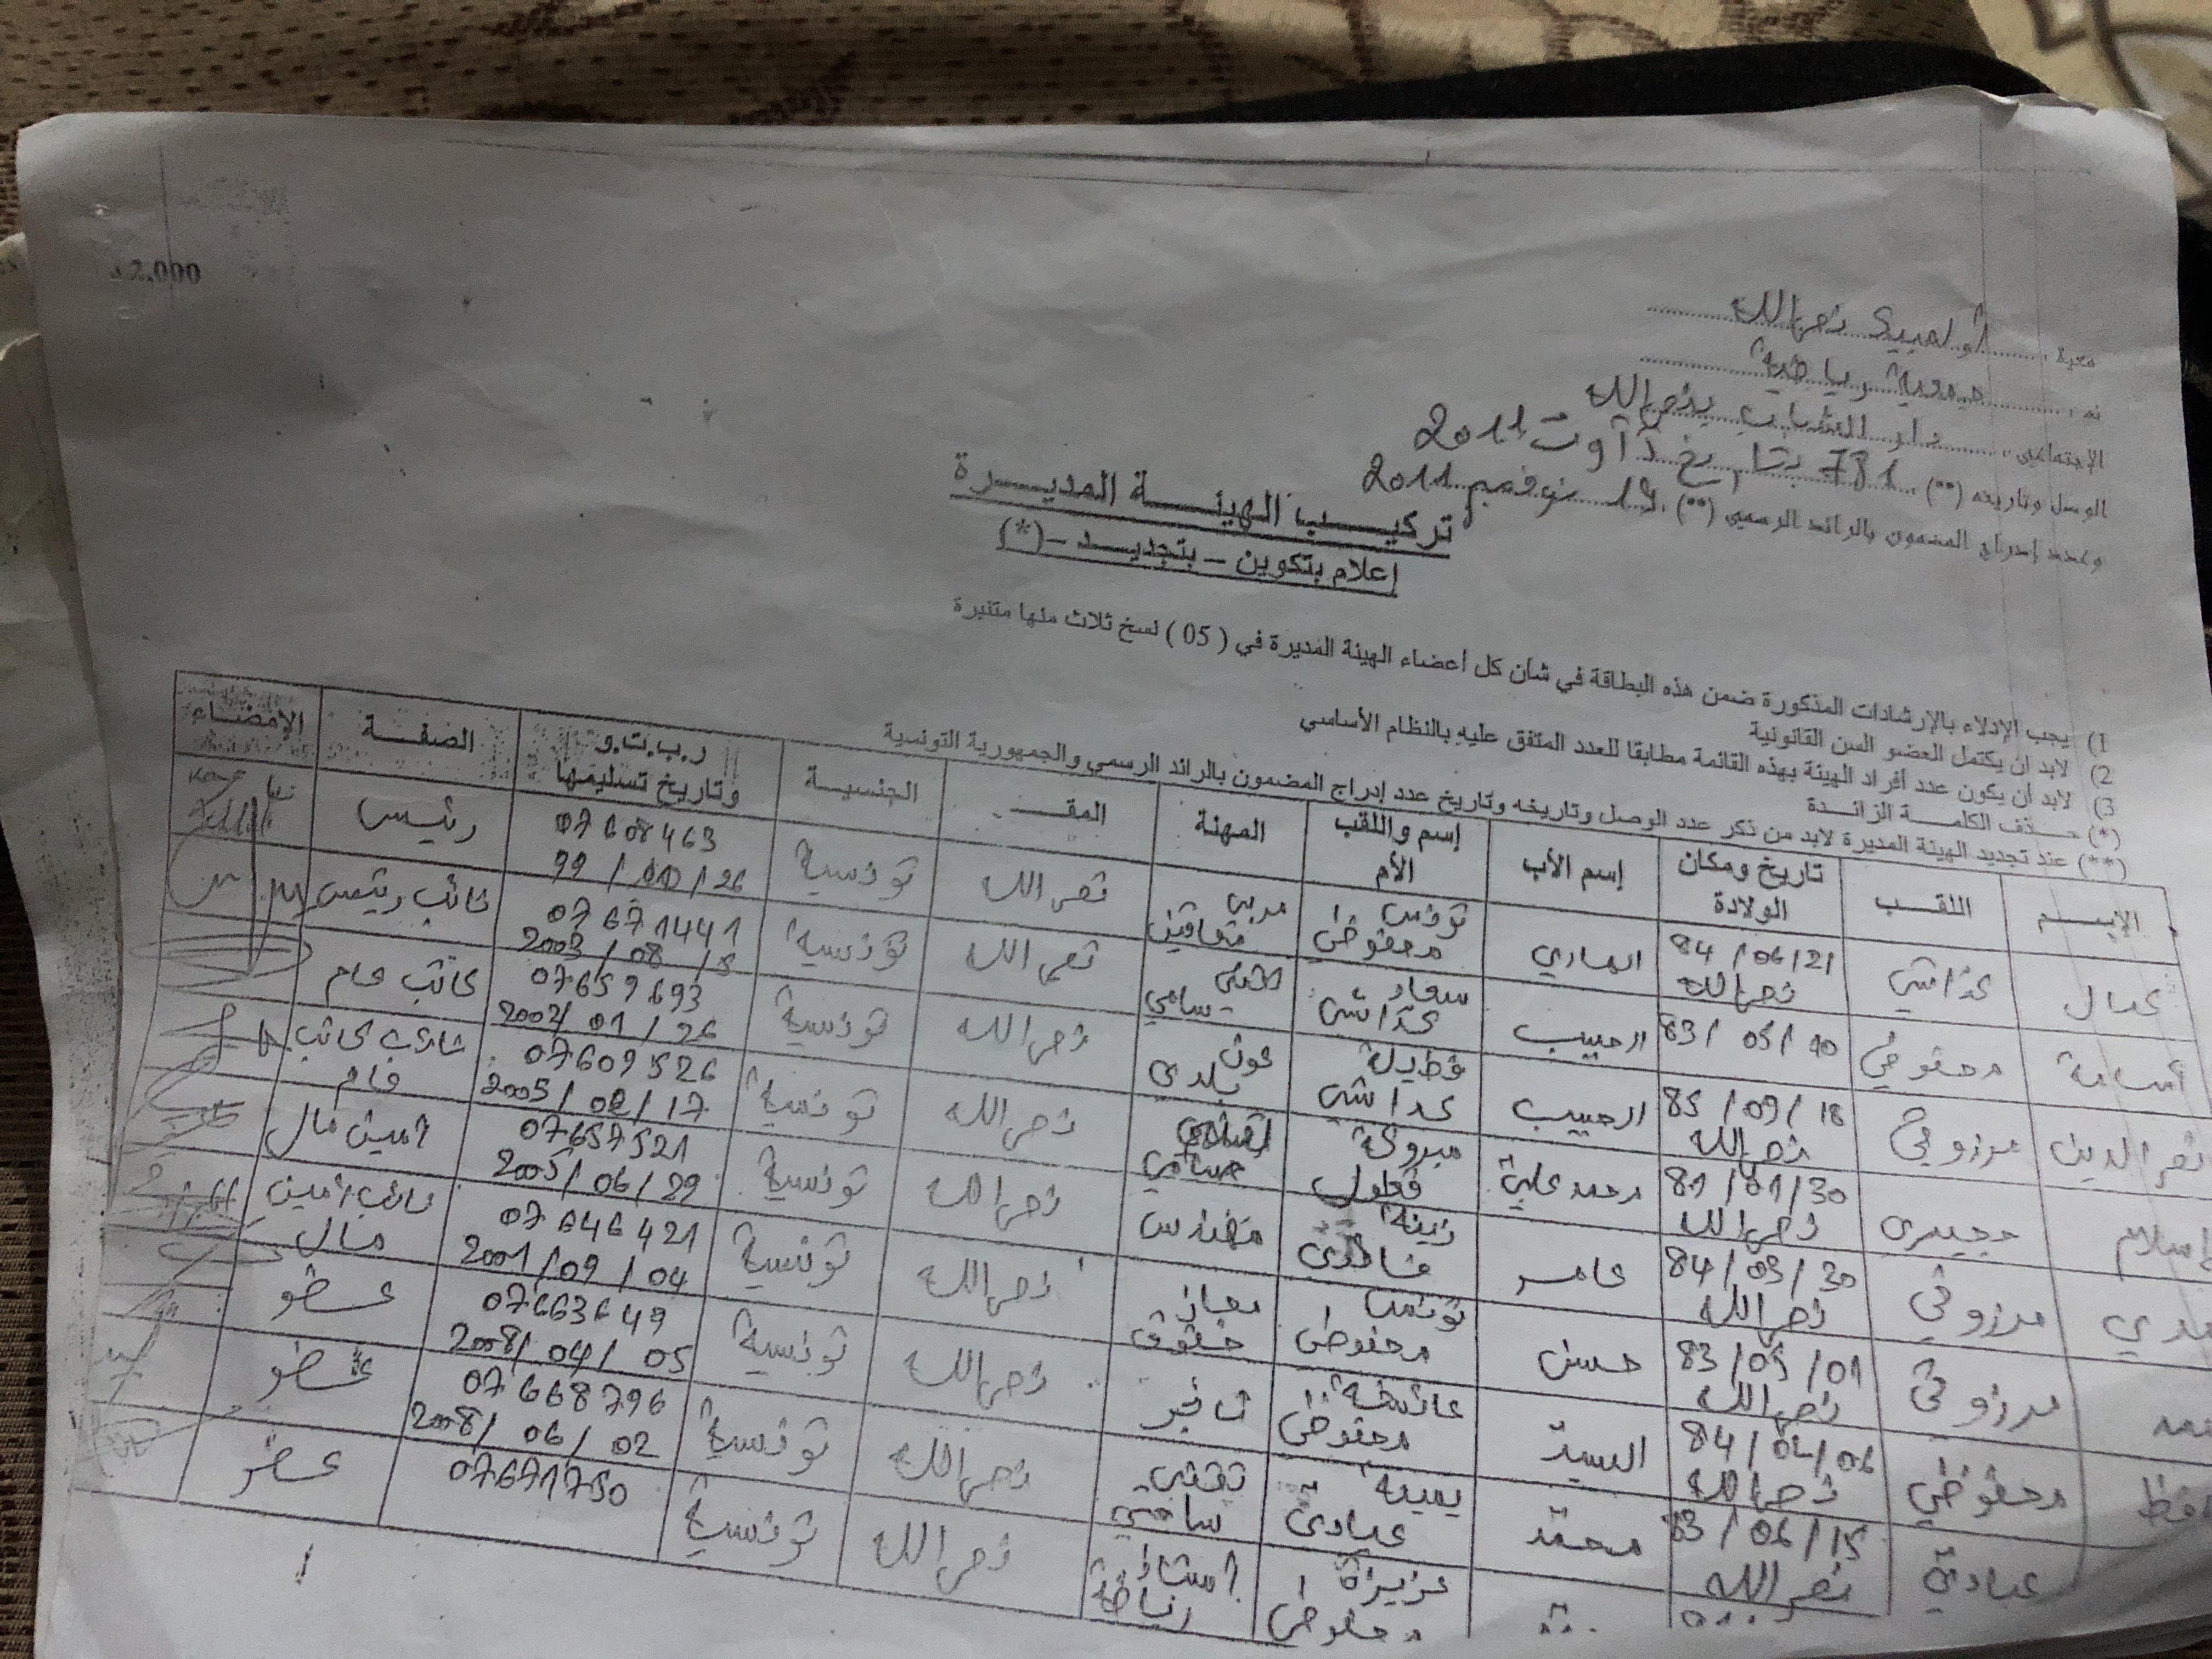 2.000
معية : أولمبيك نصر الله
نه : جمعية رياضية
الإجتماعي : دار الشباب بنصر الله
الوصل وتاريخه (**) 781 بتاريخ أوت 2011
وعدد إدراج المضمون بالرائد الرسمي (**) نوفمبر 2011
تركيـــب الهيئـــة المديـــرة
إعلام بتكوين – بتجديـــد –(*)
1) يجب الإدلاء بالإرشادات المذكورة ضمن هذه البطاقة في شأن كل أعضاء الهيئة المديرة في ( 05 ) نسخ ثلاث منها متنبرة
2) لابد أن يكتمل العضو السن القانونية
3) لابد أن يكون عدد أفراد الهيئة بهذه القائمة مطابقا للعدد المتفق عليه بالنظام الأساسي
(*) حـــذف الكلمـــة الزائـــدة
(**) عند تجديد الهيئة المديرة لابد من ذكر عدد الوصل وتاريخه وتاريخ عدد إدراج المضمون بالرائد الرسمي والجمهورية التونسية
الإســـم اللقـــب تاريخ ومكان الولادة إسم الأب إسم واللقب الأم المهنة المقـــر الجنسيـــة ر.ب.ت.و وتاريخ تسليمها الصفـــة الإمضـــاء
كمال كداشي 84/06/21 نصر الله الهادي تونس محفوظي مربي نصر الله تونسية 07608463 رئيس
أسامة محفوظي 83/05/10 الحبيب سعاد كداشي تقني سامي نصر الله تونسية 07671441 2003/08/ نائب رئيس
نصر الدين مرزوقي 85/09/18 نصر الله الحبيب فضيلة كداشي عون بلدي نصر الله تونسية 07659693 2002/01/26 كاتب عام
إسلام 81/01/30 نصر الله محمد علي مبروكة نصر الله تونسية 07609526 2005/02/17 كاتب عام
مرزوقي 84/03/30 نصر الله عامر زينة مهندس نصر الله تونسية 07657521 2005/06/29 أمين مال
مرزوقي 83/05/01 نصر الله حسن تونس محفوظي مجاز حقوق نصر الله تونسية 07646421 2001/09/04 نائب أمين مال
محفوظي 84/04/06 نصر الله السيد عائشة محفوظي تاجر نصر الله تونسية 07663649 2008/04/05 عضو
عبادي 83/06/15 نصر الله محمد يمينة عبادي تقني سامي نصر الله تونسية 07668796 2008/06/02 عضو
عزيزة محفوظي أستاذ رياضة نصر الله تونسية 07671750 عضو